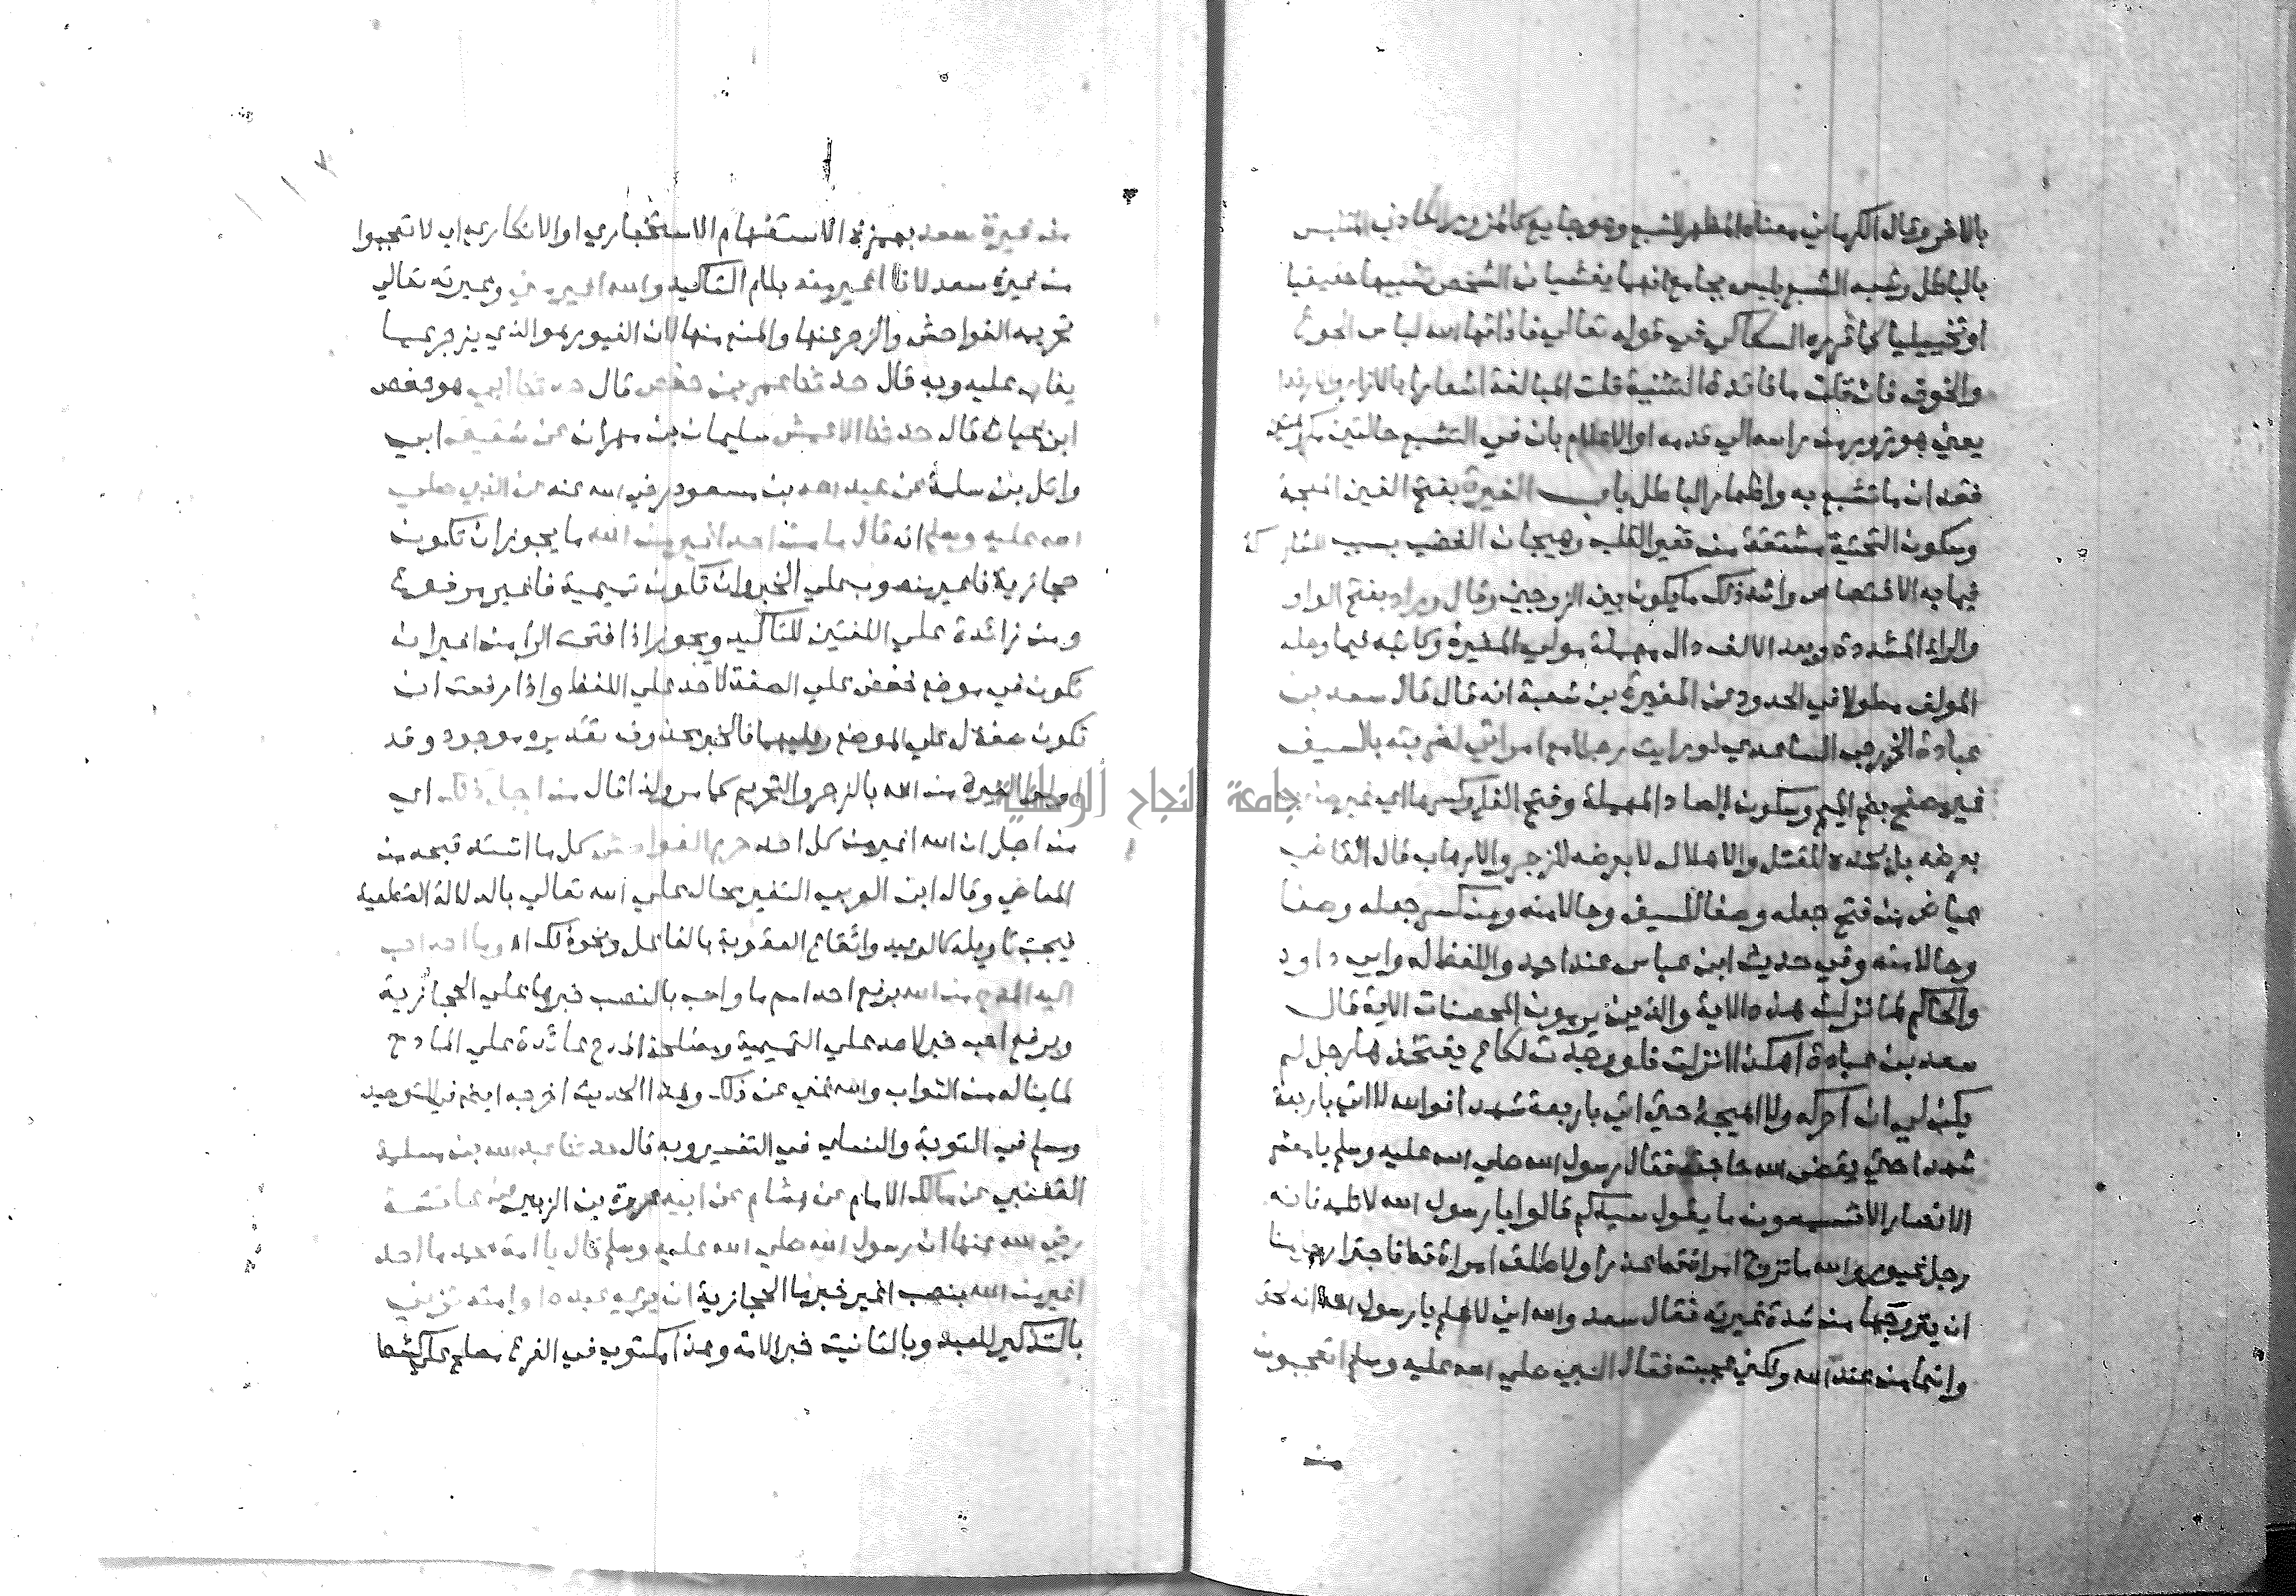 بالاخر وقال الكرماني معناه المظهر للشبع وهو جايع كالمزور الكاذب المتلبس
بالباطل وشبه الشبع بلبس بجامع انهما يغشيان الشخص تشبيها حقيقيا
او تخييليا كما قرره السكاكي في قوله تعالي فاذاقها الله لباس الجوع
والخوف فان قلت ما فائدة التثنية قلت المبالغة اشعارا بالازار والردا
يعني هو زور من راسه الي قدمه او الاعلام بان في التشبع حالتين مكروهتين
فقدان ما تشبع به واظهار الباطل باب الغيرة بفتح الغين المعجمة
وسكون التحتية مشتقة من تغير القلب وهيجان الغضب بسبب المشاركة
فيما به الاختصاص واشد ذلك ما يكون بين الزوجين وقال وراد بفتح الواو
والراء المشددة وبعد الالف دال مهملة مولي المغيرة وكاتبه فيما وصله
المولف مطولا في الحدود عن المغيرة بن شعبة انه قال قال سعد بن
عبادة الخزرجي الساعدي لو رايت رجلا مع امراتي لضربته بالسيف
غير مصفح بضم الميم وسكون الصاد المهملة وفتح الفا وكسرها اي غير ضارب
بعرضه بل بحده للقتل والاهلاك لا بعرضه للزجر والارهاب قال القاضي
عياض من فتح جعله وصفا للسيف وحالا منه ومن كسر جعله وصفا
وحالا منه وفي حديث ابن عباس عند احمد واللفظ له وابي داود
والحاكم لما نزلت هذه الاية والذين يرمون المحصنات الاية قال
سعد بن عبادة اهكذا انزلت فلو وجدت لكاع يفتخذها رجل لم
يكن لي ان احركه ولا اهيجه حتي اتي باربعة شهدا فوالله لا اتي باربعة
شهدا حتي يقضي الله حاجته فقال رسول الله صلي الله عليه وسلم يا معشر
الانصار الا تسمعون ما يقول سيدكم قالوا يا رسول الله لا تلمه فانه
رجل غيور والله ما تزوج امراة قط عذرا ولا طلق امراة قط فاجترا رجل منا
ان يتزوجها من شدة غيرته فقال سعد والله اني لاعلم يا رسول الله انه لحق
وانها من عند الله ولكني عجبت فقال النبي صلي الله عليه وسلم اتعجبون
من
من غيرة سعد بهمزة الاستفهام الاستخباري او الانكاري اي لا تعجبوا
من غيرة سعد لانا اغير منه بلام التاكيد والله اغير مني وغيرته تعالي
تحريمه الفواحش والزجر عنها والمنع منها لان الغيور هو الذي يزجر عما
يغار عليه وبه قال حدثنا عمر بن حفص قال حدثنا ابي هو حفص
ابن غياث قال حدثنا الاعمش سليمان بن مهران عن شقيق ابي
وائل بن سلمة عن عبد الله بن مسعود رضي الله عنه عن النبي صلي
الله عليه وسلم انه قال ما من احد اغير من الله ما يجوز ان تكون
حجازية فاغير منصوب علي الخبر وان تكون تميمية فاغير مرفوع
ومن زائدة علي اللغتين للتاكيد ويجوز اذا فتحت الرا من اغير ان
تكون في موضع خفض علي الصفة لاحد علي اللفظ واذا رفعت ان
تكون صفة له علي الموضع وعليهما فالخبر محذوف تقديره موجود وقد
اولوا الغيرة من الله بالزجر والتحريم كما مر ولذا قال من اجل ذلك اي
من اجل ان الله اغير من كل احد حرم الفواحش كل ما اشتد قبحه من
المعاصي وقال ابن العربي التغير محال علي الله تعالي بالدلالة القطعية
فيجب تاويله كالوعيد وايقاع العقوبة بالفاعل ونحو ذلك اه وما احد احب
اليه المدح من الله برفع احد اسم ما واحب بالنصب خبرها علي الحجازية
وبرفع احب خبر لاحد علي التميمية ومصلحة المدح عائدة علي المادح
لما يناله من الثواب والله غني عن ذلك وهذا الحديث اخرجه ايضا في التوحيد
ومسلم في التوبة والنسائي في التفسير وبه قال حدثنا عبد الله بن مسلمة
القعنبي عن مالك الامام عن هشام عن ابيه عروة بن الزبير عن عائشة
رضي الله عنها ان رسول الله صلي الله عليه وسلم قال يا امة محمد ما احد
اغير من الله بنصب اغير خبر ما الحجازية ان يري عبده او امته تزني
بالتذكير للعبد وبالتانيث خبر الامة وهذا مكتوب في الفرع مصلح علي كشط